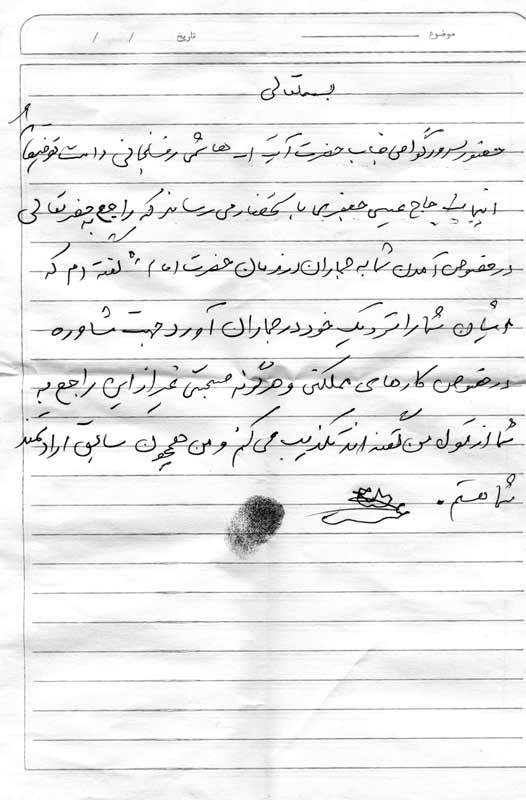 موضوع
تاریخ / /
بسمه‌تعالی
حضور سرور گرامی جناب حضرت آیت ا... هاشمی رفسنجانی دامت توفیقاته
اینجانب حاج عیسی جعفری با استحضار می رساند که راجع به جعفر تعالی
در خصوص آمدن شما به جماران در زمان حضرت امام گفته ام که
ایشان شما را نزدیک خود در جماران آورد جهت مشاوره
در خصوص کارهای مملکتی و هرگونه صحبتی غیر از این راجع به
شما از قول من گفته اند تکذیب می کنم و من همچون سابق ارادتمند
شما هستم.